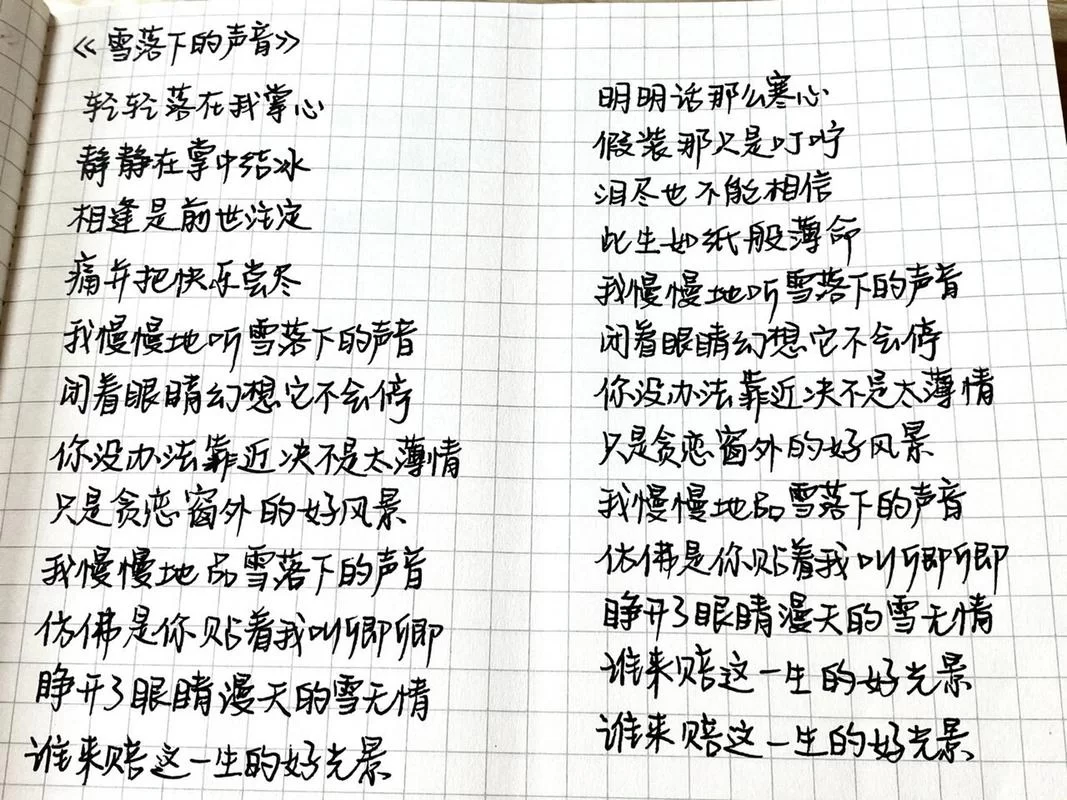 《雪落下的声音》
轻轻落在我掌心
静静在掌中结冰
相逢是前世注定
痛并把快乐尝尽
我慢慢地听雪落下的声音
闭着眼睛幻想它不会停
你没办法靠近决不是太薄情
只是贪恋窗外的好风景
我慢慢地品雪落下的声音
仿佛是你贴着我叫卿卿
睁开了眼睛漫天的雪无情
谁来赔这一生的好光景
明明话那么寒心
假装那只是叮咛
泪尽也不能相信
此生如纸般薄命
我慢慢地听雪落下的声音
闭着眼睛幻想它不会停
你没办法靠近决不是太薄情
只是贪恋窗外的好风景
我慢慢地品雪落下的声音
仿佛是你贴着我叫卿卿
睁开了眼睛漫天的雪无情
谁来赔这一生的好光景
谁来赔这一生的好光景